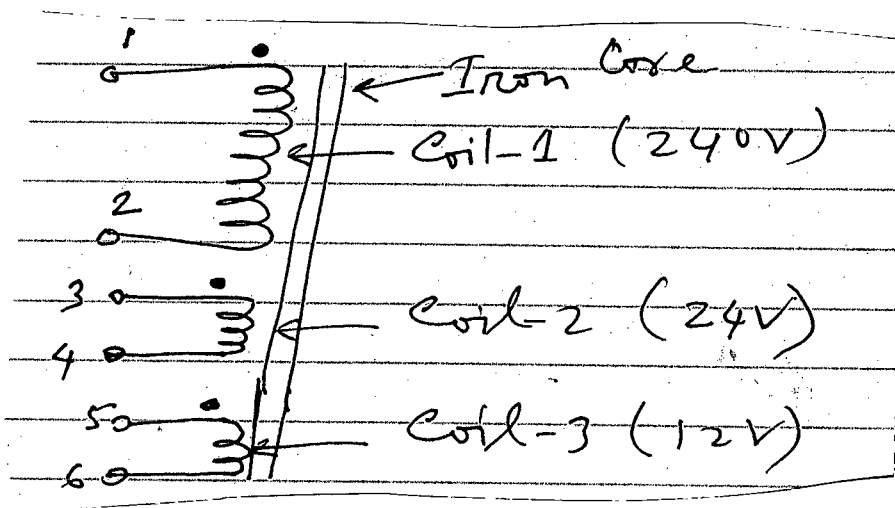 1
Iron Core
Coil-1 (240V)
2
3
Coil-2 (24V)
4
5
Coil-3 (12V)
6